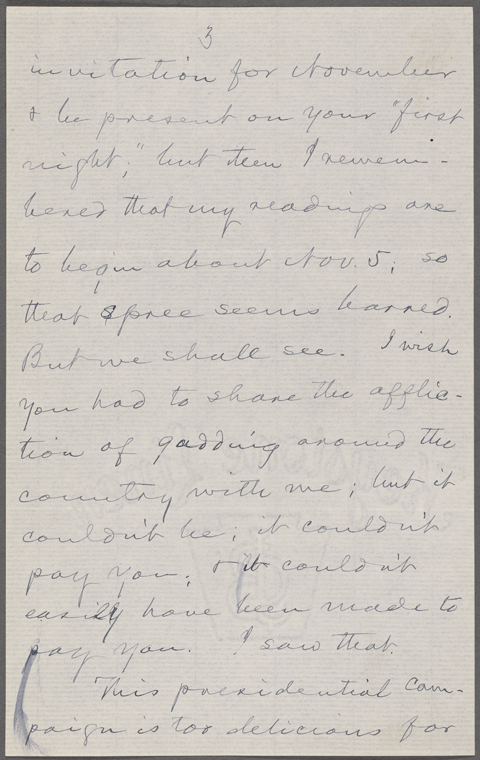 3
invitation for November
& be present on your "first
night;" but then I remem-
bered that my readings are
to begin about Nov. 5; so
that spree seems barred.
But we shall see. I wish
you had to share the afflic-
tion of gadding around the
country with me; but it
couldn't be; it couldn't
pay you; & it couldn't
easily have been made to
pay you. I saw that.
This presidential cam-
paign is too delicious for